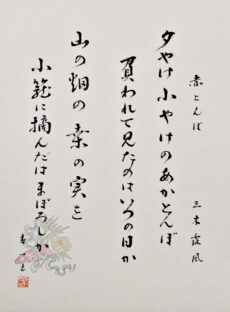 赤とんぼ 三木露風
夕やけ小やけのあかとんぼ
負われて見たのはいつの日か
山の畑の桑の実を
小籠に摘んだはまぼろしか